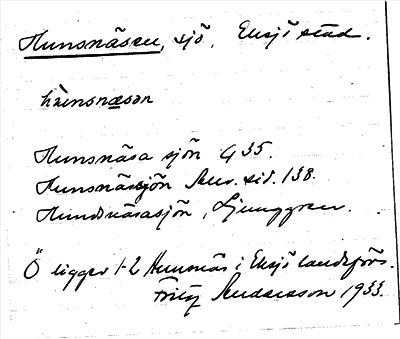 Hunsnäsen, sjö, Eksjö stad.
hùnsnæsən
Hunsnäsa sjön G 35.
Hunsnässjön Skr. sid. 138.
Hundsnäsasjön, Ljunggren.
Ö ligger 1-2 Hunsnäs i Eksjö landsförs.
Fritz Andersson 1933.